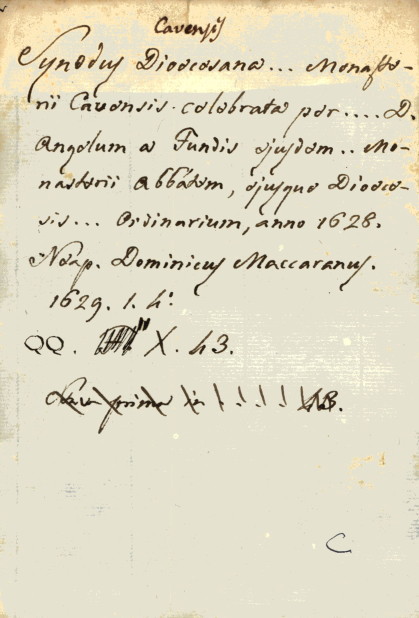 Cavensis
Synodus Dioecesana... Monaste-
rii Cavensis celebrata per.... D.
Angelum a Fundis ejusdem.. Mo-
nasterii Abbatem, ejusque Dioece-
sis... Ordinarium, anno 1628.
Neap. Dominicus Maccaranus.
1629. 1. 4.º
QQ. X. 43.
prima 43.
C